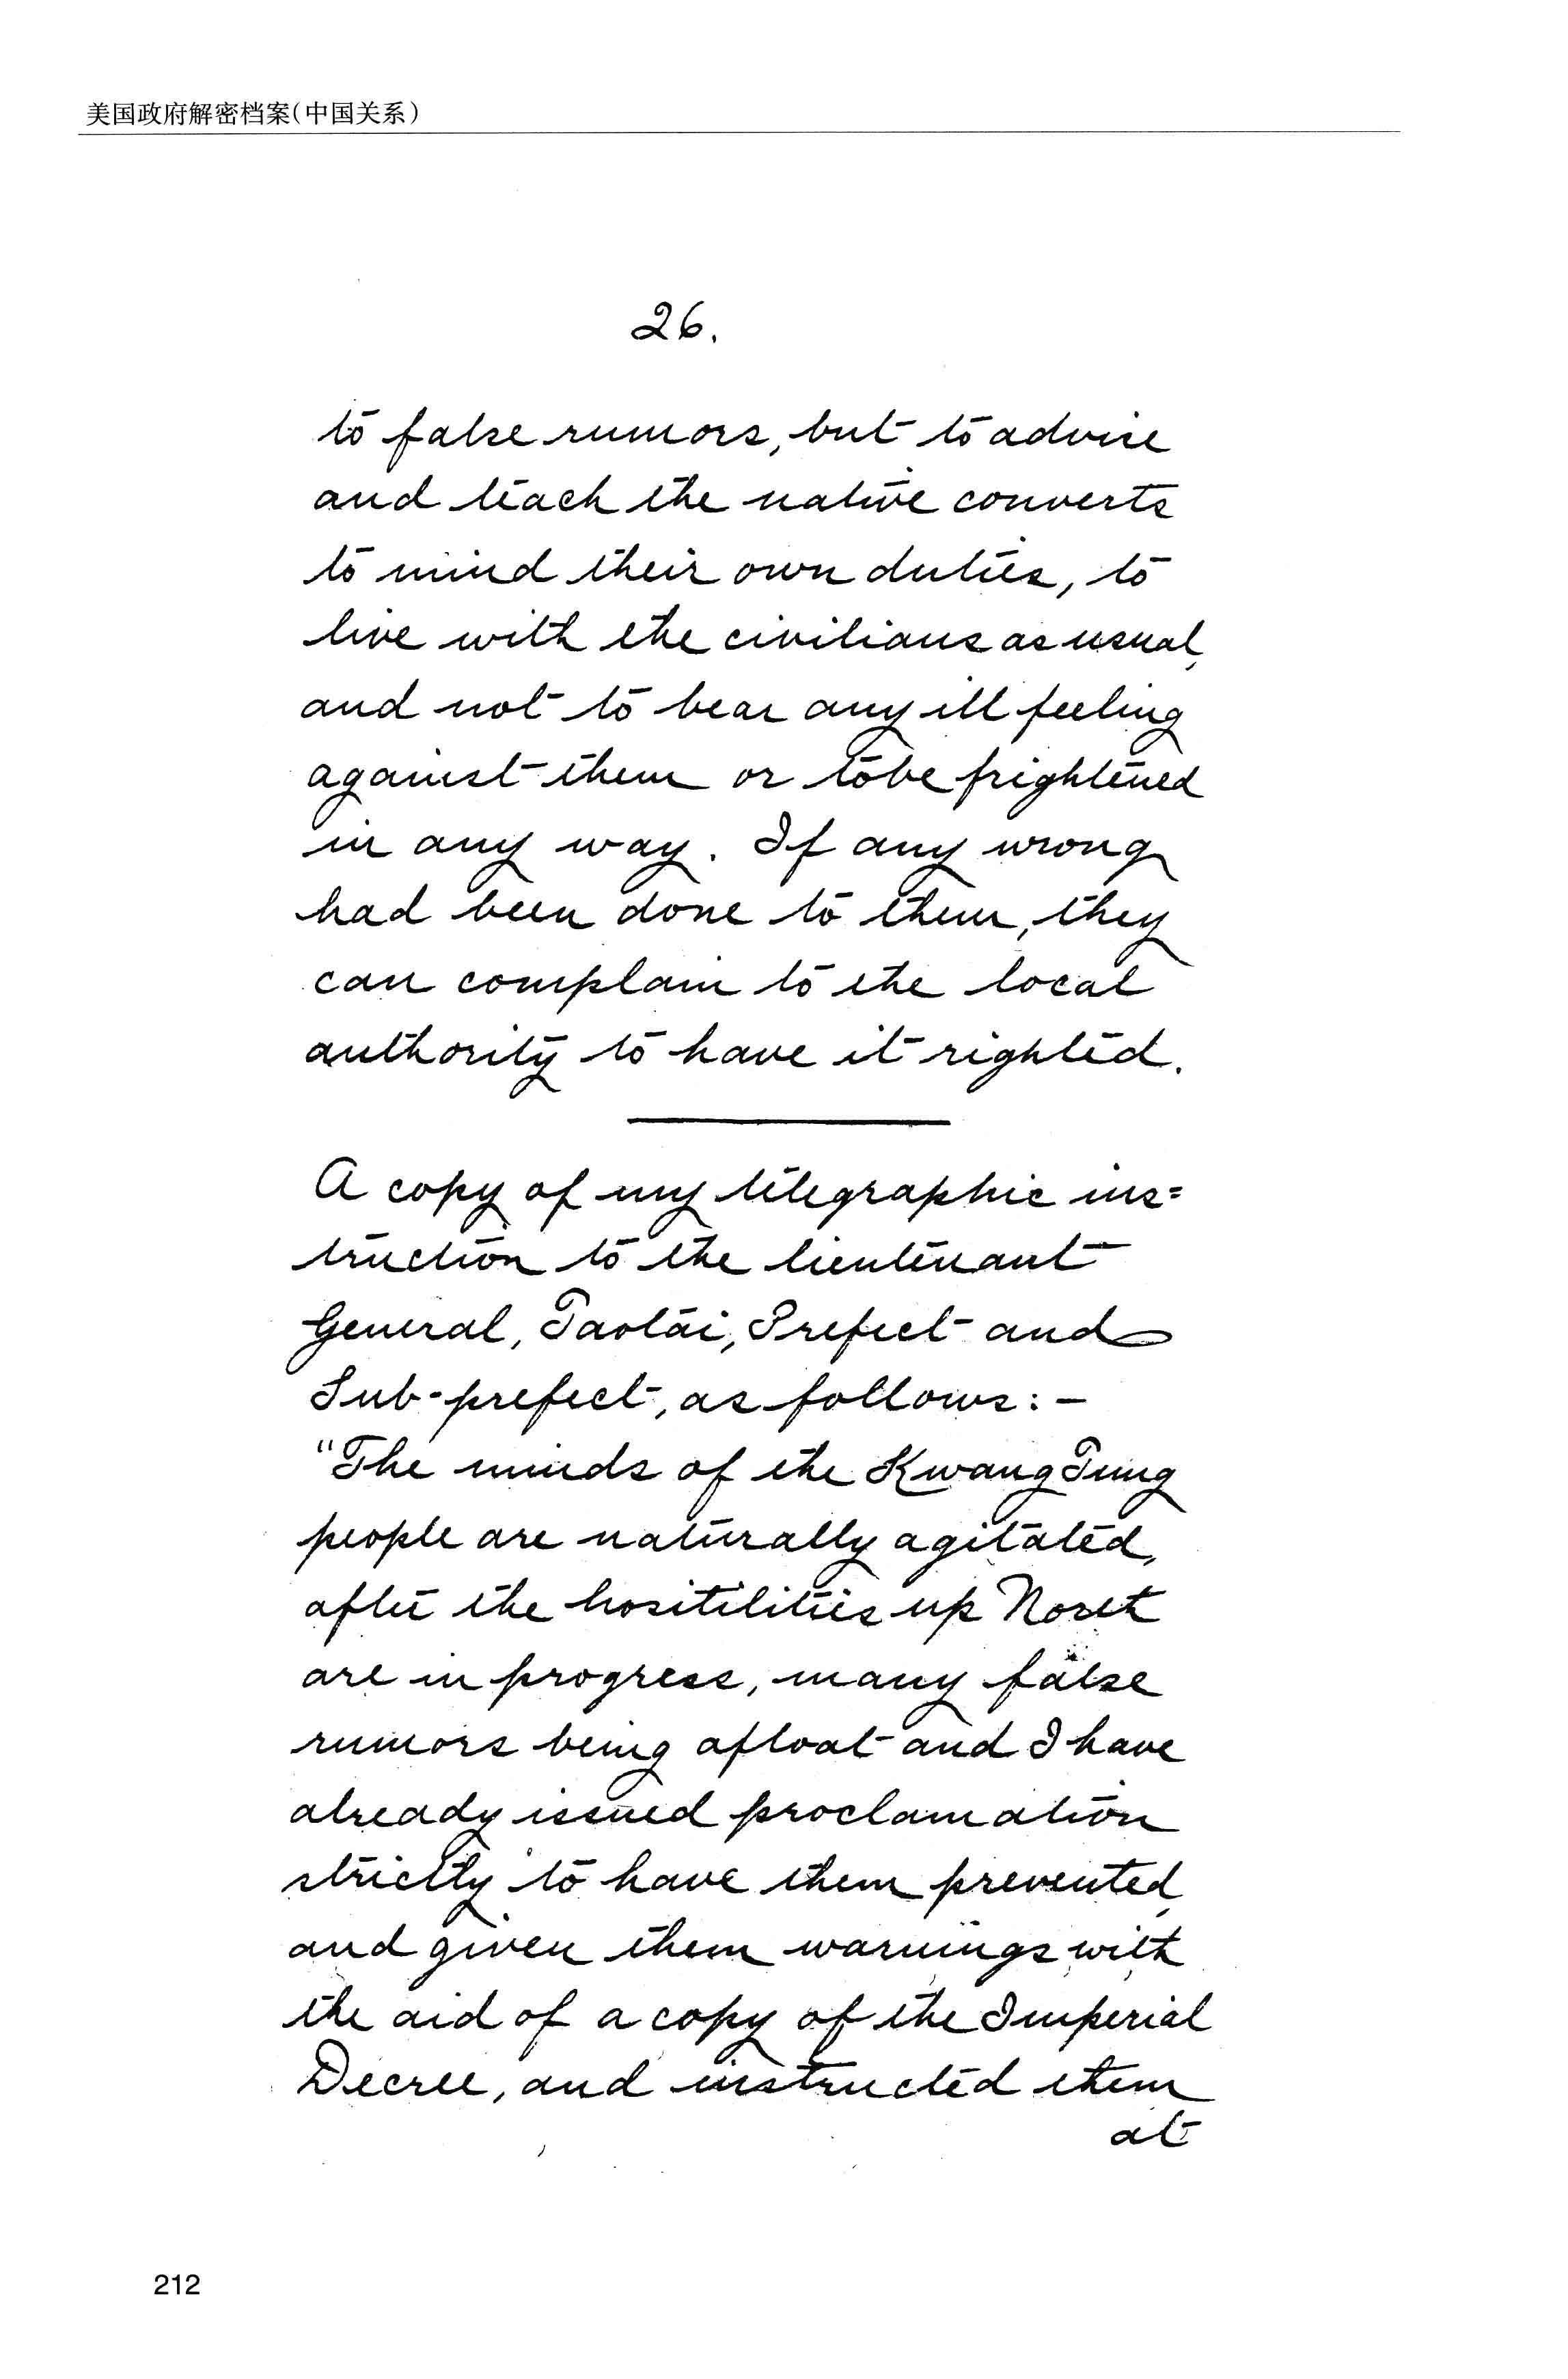 美国政府解密档案(中国关系)
26.
to false rumors, but to advise
and teach the native converts
to mind their own duties, to
live with the civilians as usual,
and not to bear any ill feeling
against them or to be frightened
in any way. If any wrong
had been done to them, they
can complain to the local
authority to have it righted.
A copy of my telegraphic ins=
truction to the lieutenant
General, Taotai, Prefect and
Sub-prefect, as follows: -
"The minds of the Kwang Tung
people are naturally agitated,
after the hositilities up North
are in progress, many false
rumors being afloat and I have
already issued proclamation
strictly to have them prevented,
and given them warnings with
the aid of a copy of the Imperial
Decree, and instructed them
at
212